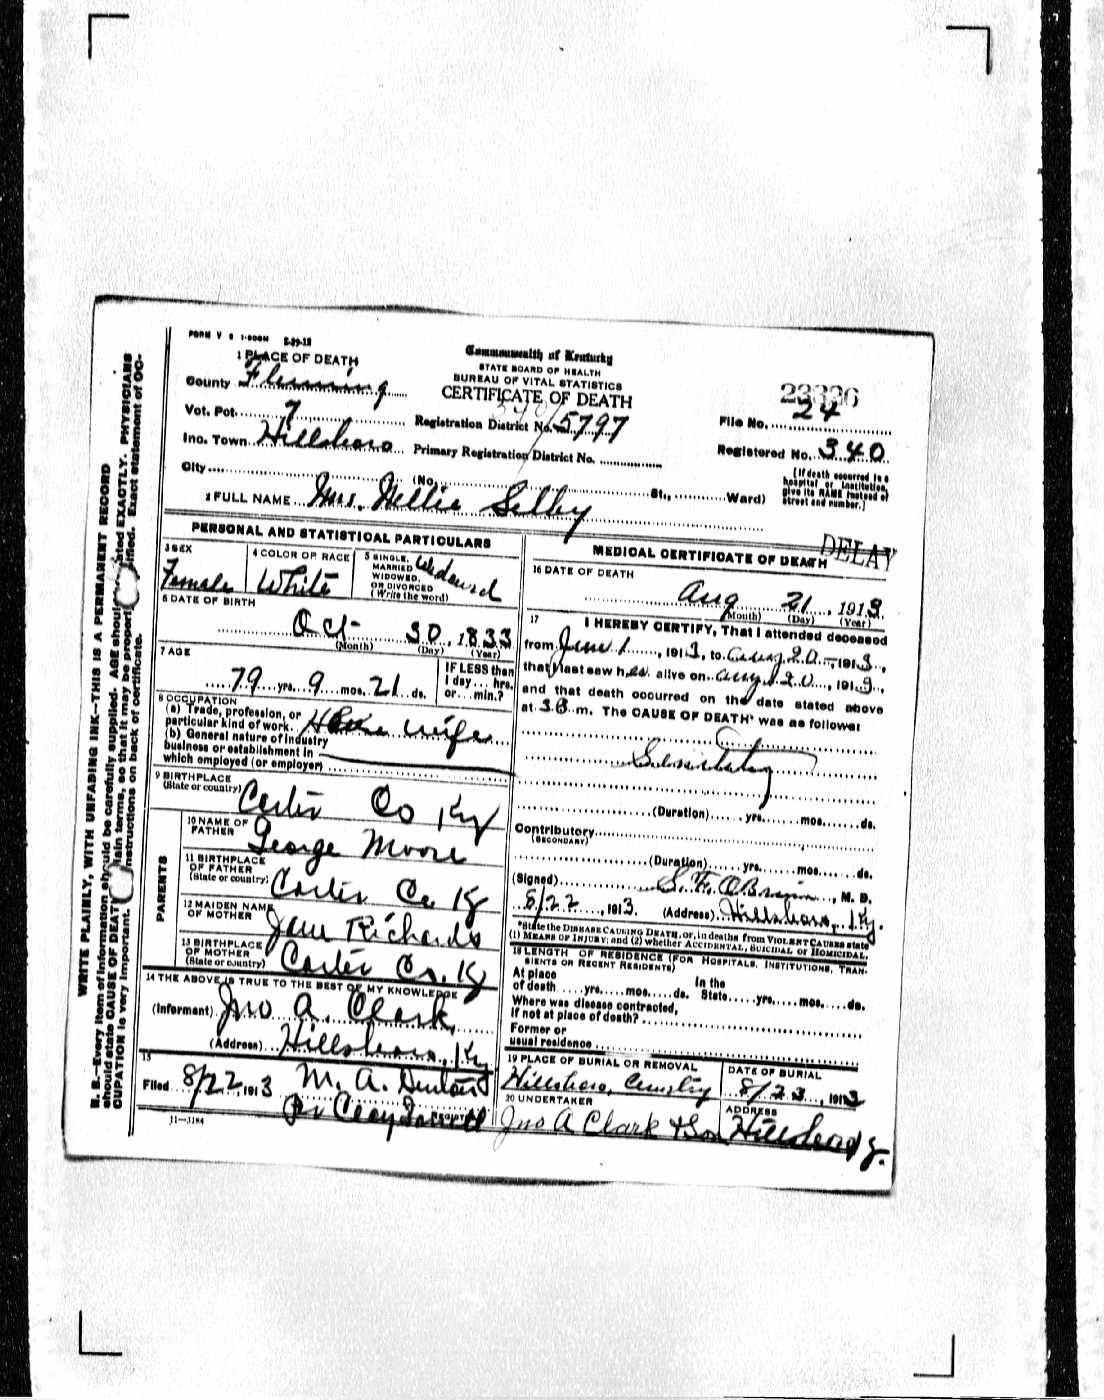 FORM V S 1-500M 2-29-12
Commonwealth of Kentucky
STATE BOARD OF HEALTH
BUREAU OF VITAL STATISTICS
CERTIFICATE OF DEATH
1 PLACE OF DEATH
County Fleming
Vot. Pct. 7
Registration District No. 5797
File No. 24
Ino. Town Hillsboro
Primary Registration District No.
Registered No. 340
City (No. St., Ward)
(If death occurred in a hospital or institution, give its NAME instead of street and number.)
2 FULL NAME Mrs. Nellie Selby
PERSONAL AND STATISTICAL PARTICULARS
3 SEX Female
4 COLOR OR RACE White
5 SINGLE, MARRIED, WIDOWED, OR DIVORCED (Write the word) Widowed
6 DATE OF BIRTH
Oct 30, 1833
(Month) (Day) (Year)
7 AGE
79 yrs. 9 mos. 21 ds.
IF LESS than 1 day... hrs. or... min.?
8 OCCUPATION
(a) Trade, profession, or particular kind of work. House wife
(b) General nature of industry business or establishment in which employed (or employer)
9 BIRTHPLACE
(State or country) Carter Co Ky
PARENTS
10 NAME OF FATHER George Moore
11 BIRTHPLACE OF FATHER (State or country) Carter Co Ky
12 MAIDEN NAME OF MOTHER Jane Richards
13 BIRTHPLACE OF MOTHER (State or country) Carter Co. Ky
14 THE ABOVE IS TRUE TO THE BEST OF MY KNOWLEDGE
(Informant) Jno A. Clark
(Address) Hillsboro, Ky
15
Filed 8/22, 1913 M. A.
Pr Clay
REGISTRAR
11—3184
DELAY
MEDICAL CERTIFICATE OF DEATH
16 DATE OF DEATH
Aug 21, 1913
(Month) (Day) (Year)
17 I HEREBY CERTIFY, That I attended deceased
from June 1, 1913, to Aug 20, 1913,
that I last saw her alive on Aug 20, 1913,
and that death occurred on the date stated above
at 3 m. The CAUSE OF DEATH* was as follows:
(Duration) yrs. mos. ds.
Contributory
(SECONDARY)
(Duration) yrs. mos. ds.
(Signed) O'Brien, M. D.
8/22, 1913. (Address) Hillsboro, Ky.
*State the DISEASE CAUSING DEATH, or, in deaths from VIOLENT CAUSES state
(1) MEANS OF INJURY; and (2) whether ACCIDENTAL, SUICIDAL or HOMICIDAL.
18 LENGTH OF RESIDENCE (FOR HOSPITALS, INSTITUTIONS, TRANSIENTS OR RECENT RESIDENTS)
At place of death yrs. mos. ds. In the State yrs. mos. ds.
Where was disease contracted,
if not at place of death?
Former or
usual residence
19 PLACE OF BURIAL OR REMOVAL
Hillsboro, Cemetery
DATE OF BURIAL
8/23, 1913
20 UNDERTAKER
Jno A Clark & Son
ADDRESS
Hillsboro Ky.
WRITE PLAINLY, WITH UNFADING INK--THIS IS A PERMANENT RECORD
N. B.--Every item of information should be carefully supplied. AGE should stated EXACTLY. PHYSICIANS
should state CAUSE OF DEATH plain terms, so that it may be properly ified. Exact statement of OC-
CUPATION is very important. instructions on back of certificate.